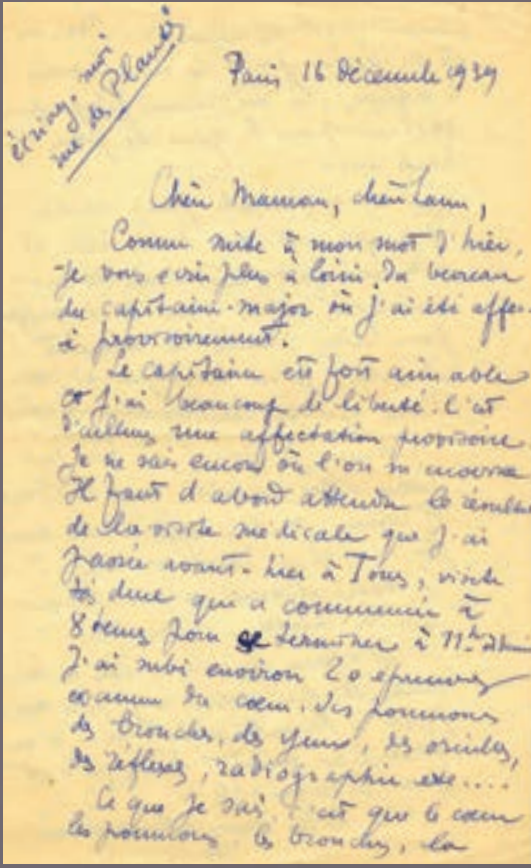 écrivez-moi
rue des Plantes
Paris 16 décembre 1939
Chère Maman, cher
Comme suite à mon mot d'hier,
je vous écris plus à loisir du bureau
du capitaine-major où j'ai été affec-
té provisoirement.
Le capitaine est fort aimable
et j'ai beaucoup de liberté. C'est
d'ailleurs une affectation provisoire.
Je ne sais encore où l'on m'enverra
Il faut d'abord attendre le résultat
de la visite médicale que j'ai
passée avant-hier à Tours, visite
qui a commencé à
8 heures pour se terminer à 11h
J'ai subi environ 20 épreuves
examen du cœur, des poumons
des bronches, des yeux, des oreilles,
des réflexes, radiographie etc....
Ce que je sais, c'est que le cœur
les poumons, les bronches, la